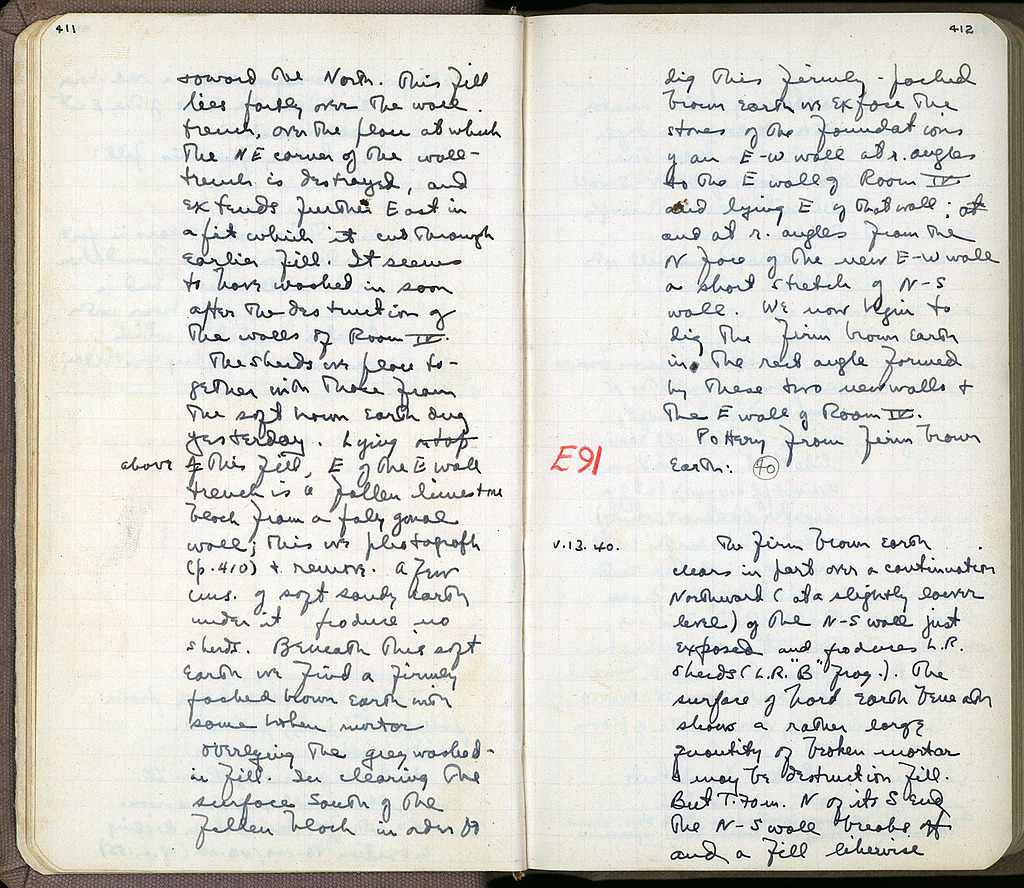 411
toward the North. This fill
lies partly over the wall
trench, over the place at which
the NE corner of the wall-
trench is destroyed, and
extends further East in
a pit which it cut through
earlier fill. It seems
to have washed in soon
after the destruction of
the walls of Room IV.
The sherds we place to-
gether with those from
the soft brown earth dug
yesterday. Lying atop
above this fill, E of the E wall
trench is a fallen limestone
block from a polygonal
wall; this we photograph
(p. 410) & remove. A few
cms. of soft sandy earth
under it produce no
sherds. Beneath this soft
earth we find a firmly
packed brown earth with
some broken mortar
overlying the grey washed-
in fill. In clearing the
surface South of the
fallen block in order to
412
dig this firmly-packed
brown earth we expose the
stones of the foundations
of an E-W wall at r. angles
to the E wall of Room IV
and lying E of that wall; at
and at r. angles from the
N face of the new E-W wall
a short stretch of N-S
wall. We now begin to
dig the firm brown earth
in the rect angle formed
by these two new walls &
the E wall of Room IV.
Pottery from firm brown
E91 Earth: 40
V.13.40. The firm brown earth
clears in part over a continuation
Northward (at a slightly lower
level) of the N-S wall just
exposed and produces L.R.
sherds (L.R. "B" frag.). The
surface of hard earth beneath
shows a rather large
quantity of broken mortar
& may be destruction fill.
But 7.70m. N of its S end
the N-S wall breaks off
and a fill likewise